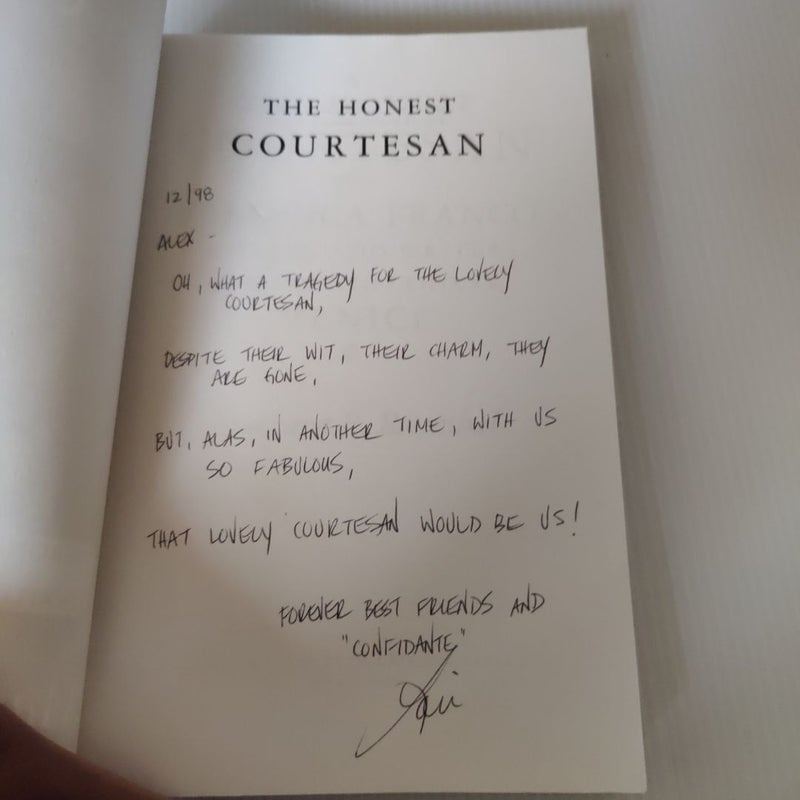 THE HONEST
COURTESAN
12/98
ALEX -
OH, WHAT A TRAGEDY FOR THE LOVELY
COURTESAN,
DESPITE THEIR WIT, THEIR CHARM, THEY
ARE GONE,
BUT, ALAS, IN ANOTHER TIME, WITH US
SO FABULOUS,
THAT LOVELY COURTESAN WOULD BE US!
FOREVER BEST FRIENDS AND
"CONFIDANTE"